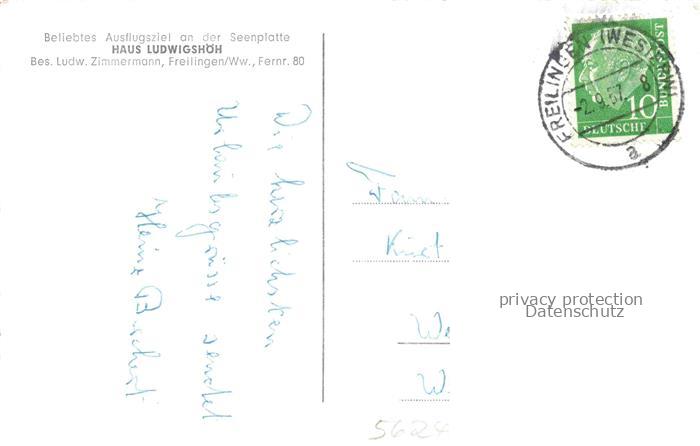 Beliebtes Ausflugsziel an der Seenplatte
HAUS LUDWIGSHÖH
Bes. Ludw. Zimmermann, Freilingen/Ww., Fernr. 80
Die herzlichsten
Urlaubsgrüsse sendet
Heinz
FREILINGEN (WESTERW)
-2.9.57. 8
a
10
DEUTSCHE
BUNDESPOST
Fam
We
W
5624
privacy protection
Datenschutz